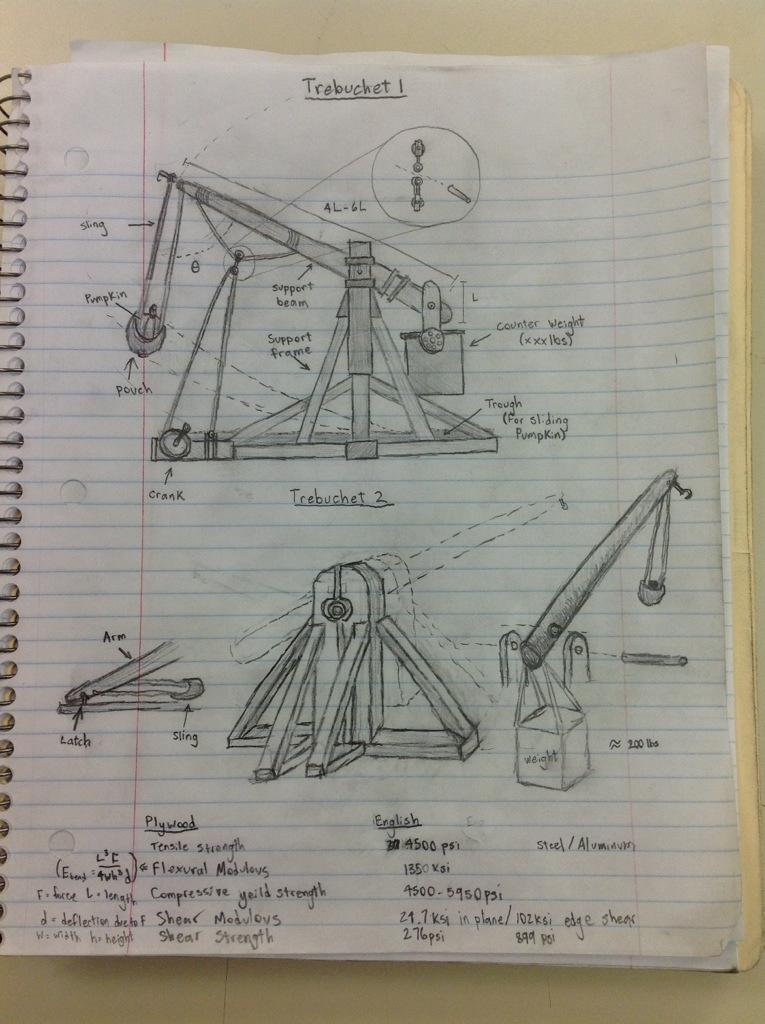 Trebuchet 1
4L-6L
sling
θ
support
beam
L
Pumpkin
Counter Weight
(xxxlbs)
Support
frame
Pouch
Trough
(for sliding
Pumpkin)
Crank
Trebuchet 2
Arm
Latch
Sling
weight
≈ 200 lbs
Plywood English
Tensile strength 4500 psi Steel/Aluminum
(Ebend = L³F/4wh³d) ← Flexural Modulous 1350 Ksi
F=force L=length Compressive yeild strength 4500-5950psi
d = deflection due to F Shear Modulous 24.7Ksi in plane/102ksi edge shear
W=width h=height Shear Strength 276psi 899 psi